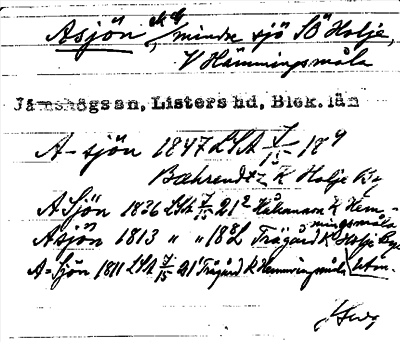 Asjön, mindre sjö SÖ Holje,
V Hämmingsmåla
Jämshögs sn, Listers hd, Blek. län
A-sjön 1847 LSA 7/15 18⁹
Bæhrendtz K Holje By
A Sjön 1836 LSA 7/15 21² Håkanson K Hem-
mingsmåla
Asjön 1813 " " 18⁸ L Trägård K Holje By
A-Sjön 1811 LSA 7/15 21¹ Trägård K Hemmingsmåla Utm.